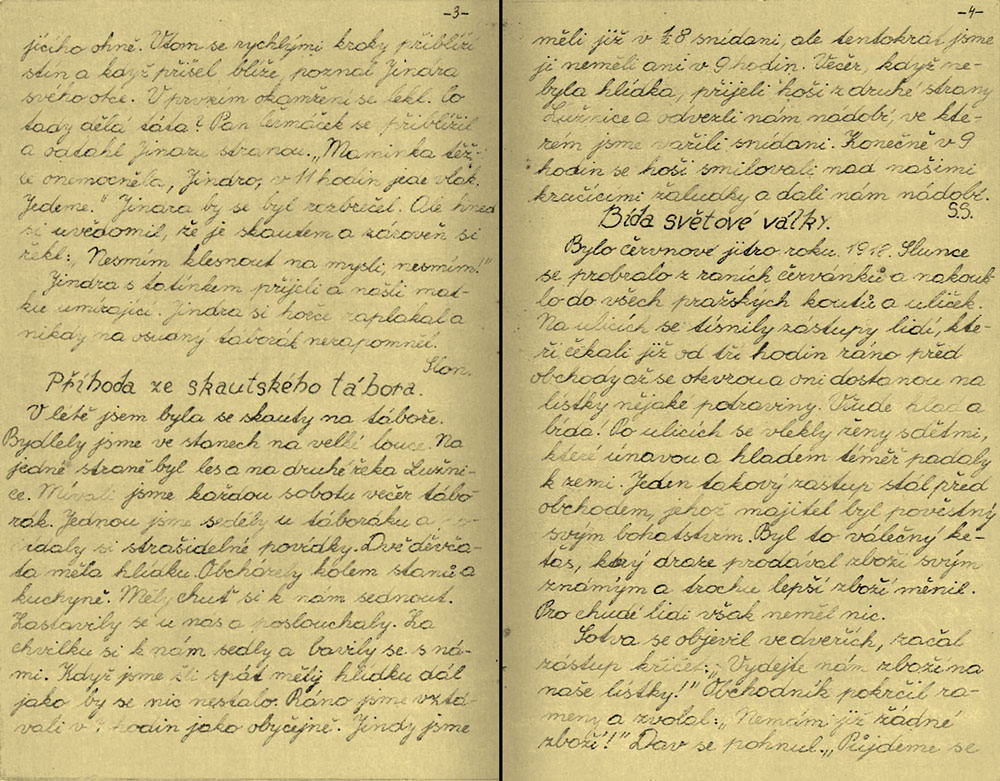 -3-
jícího ohně. Vtom se rychlými kroky přiblížil
stín a když přišel blíže, poznal Jindra
svého otce. V prvním okamžení se lekl. Co
tady dělá táta? Pan Čermáček se přiblížil
a odtáhl Jindru stranou. „Maminka těž-
ce onemocněla, Jindro, v 11 hodin jede vlak.
Jedeme." Jindra by se byl rozbrečel. Ale hned
si uvědomil, že je skautem a zároveň si
řekl: „Nesmím klesnout na mysli, nesmím!"
Jindra s tatínkem přijeli a našli mat-
ku umírající. Jindra si hořce zaplakal a
nikdy na osudný táborák nezapomněl.
Slon.
Příhoda ze skautského tábora.
V létě jsem byla se skauty na táboře.
Bydlely jsme ve stanech na velké louce. Na
jedné straně byl les a na druhé řeka Lužni-
ce. Mívali jsme každou sobotu večer tábo-
rák. Jednou jsme seděly u táboráku a po-
vídaly si strašidelné povídky. Dvě děvča-
ta měla hlídku. Obcházely kolem stanů a
kuchyně. Měly chuť si k nám sednout.
Zastavily se u nás a poslouchaly. Za
chvilku si k nám sedly a bavily se s ná-
mi. Když jsme šli spát měly hlídku dál
jako by se nic nestalo. Ráno jsme vstá-
vali v hodin jako obyčejně. Jindy jsme
-4-
měli již v ½8 snídani, ale tentokrát jsme
ji neměli ani v 9 hodin. Večer, když ne-
byla hlídka, přijeli hoši z druhé strany
Lužnice a odvezli nám nádobí, ve kte-
rém jsme vařili snídani. Konečně v 9
hodin se hoši smilovali nad našimi
kručícími žaludky a dali nám nádobí.
S.S.
Bída světové války.
Bylo červnové jitro roku 1918. Slunce
se probralo z raních červánků a nakouk-
lo do všech pražských koutů a uliček.
Na ulicích se tísnily zástupy lidí, kte-
ří čekali již od tří hodin ráno před
obchody až se otevrou a oni dostanou na
lístky nějaké potraviny. Všude hlad a
bída! Po ulicích se vlekly ženy s dětmi,
které únavou a hladem téměř padaly
k zemi. Jeden takový zástup stál před
obchodem, jehož majitel byl pověstný
svým bohatstvím. Byl to válečný ke-
ťas, který draze prodával zboží svým
známým a trochu lepší zboží měnil.
Pro chudé lidi však neměl nic.
Sotva se objevil ve dveřích, začal
zástup křičet: „Vydejte nám zboží na
naše lístky!" Obchodník pokrčil ra-
meny a zvolal: „Nemám již žádné
zboží!" Dav se pohnul. „Půjdeme se